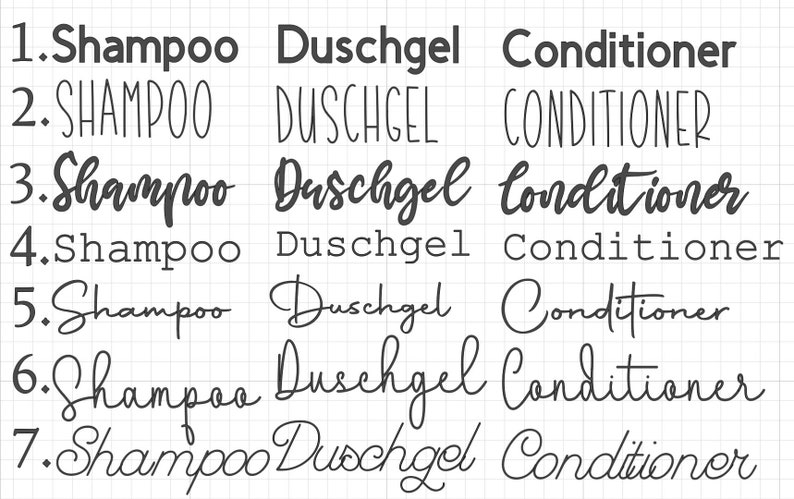 1. Shampoo Duschgel Conditioner
2. SHAMPOO DUSCHGEL CONDITIONER
3. Shampoo Duschgel Conditioner
4. Shampoo Duschgel Conditioner
5. Shampoo Duschgel Conditioner
6. Shampoo Duschgel Conditioner
7. Shampoo Duschgel Conditioner